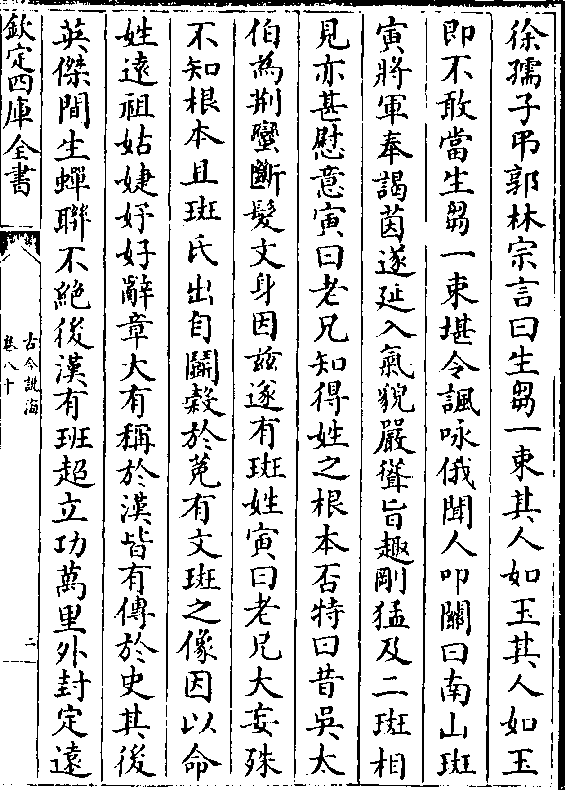 徐孺子弔郭林宗言曰生芻一束其人如玉其人如玉
即不敢當生芻一束堪令諷咏俄聞人叩關曰南山斑
寅將軍奉謁茵遂延入氣貌嚴聳旨趣剛猛及二斑相
見亦甚慰意寅曰老兄知得姓之根本否特曰昔吳太
伯為荆蠻斷髮文身因兹遂有斑姓寅曰老兄大妄殊
不知根本且斑氏出自鬬榖於菟有文斑之像因以命
姓遠祖姑婕妤好辭章大有稱於漢皆有傳於史其後
英傑間生蟬聯不絶後漢有班超立功萬里外封定遠
欽定四庫全書
古今說海
卷八十
二